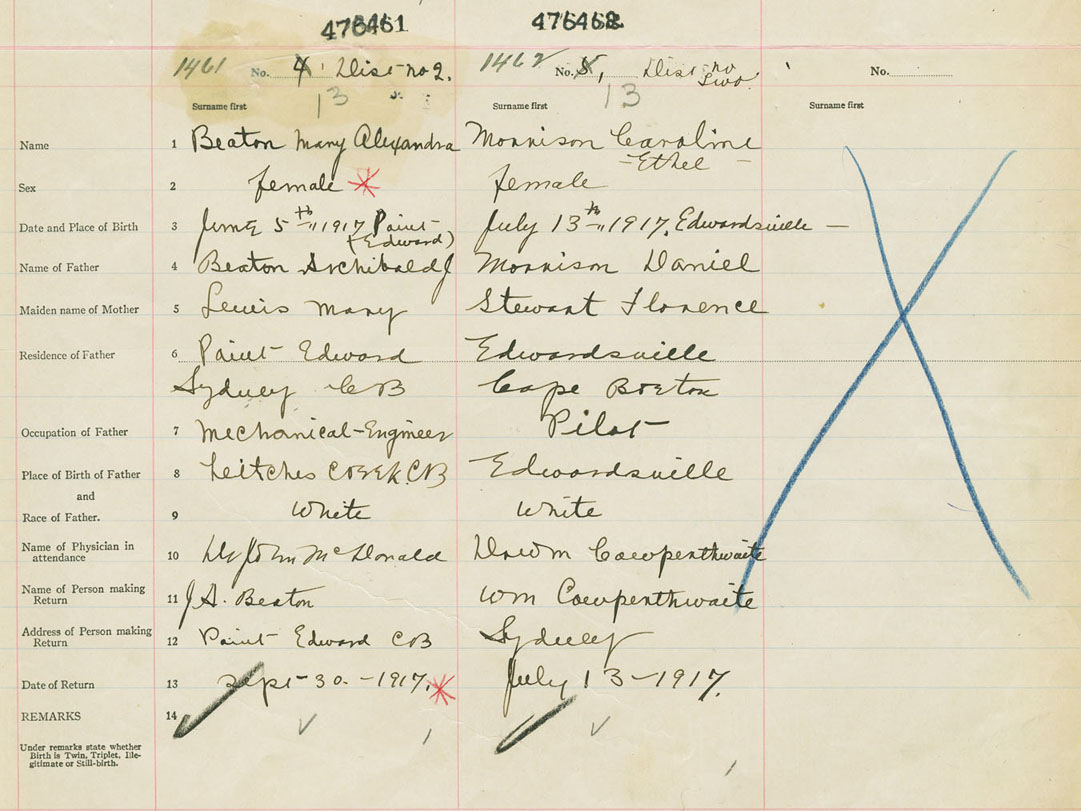 476461 476462
1461 No. 4, Dist no 2. 1462 No. 5, Dist no Two No.
13 13
Surname first Surname first Surname first
Name 1 Beaton Mary Alexandra Morrison Caroline
-Ethel-
Sex 2 female female
Date and Place of Birth 3 June 5th 1917 Point Edward) July 13th 1917, Edwardsville —
Name of Father 4 Beaton Archibald J Morrison Daniel
Maiden name of Mother 5 Lewis Mary Stewart Florence
Residence of Father 6 Point Edward Edwardsville
Sydney C B Cape Breton
Occupation of Father 7 Mechanical-Engineer Pilot
Place of Birth of Father 8 Leitches Creek. CB Edwardsville
and
Race of Father. 9 White White
Name of Physician in attendance 10 Dr John McDonald Dr Wm Cowperthwaite
Name of Person making Return 11 J A. Beaton Wm Cowperthwaite
Address of Person making Return 12 Point Edward CB Sydney
Date of Return 13 Sept-30.-1917. July 13-1917.
REMARKS 14
Under remarks state whether
Birth is Twin, Triplet, Ille-
gitimate or Still-birth.